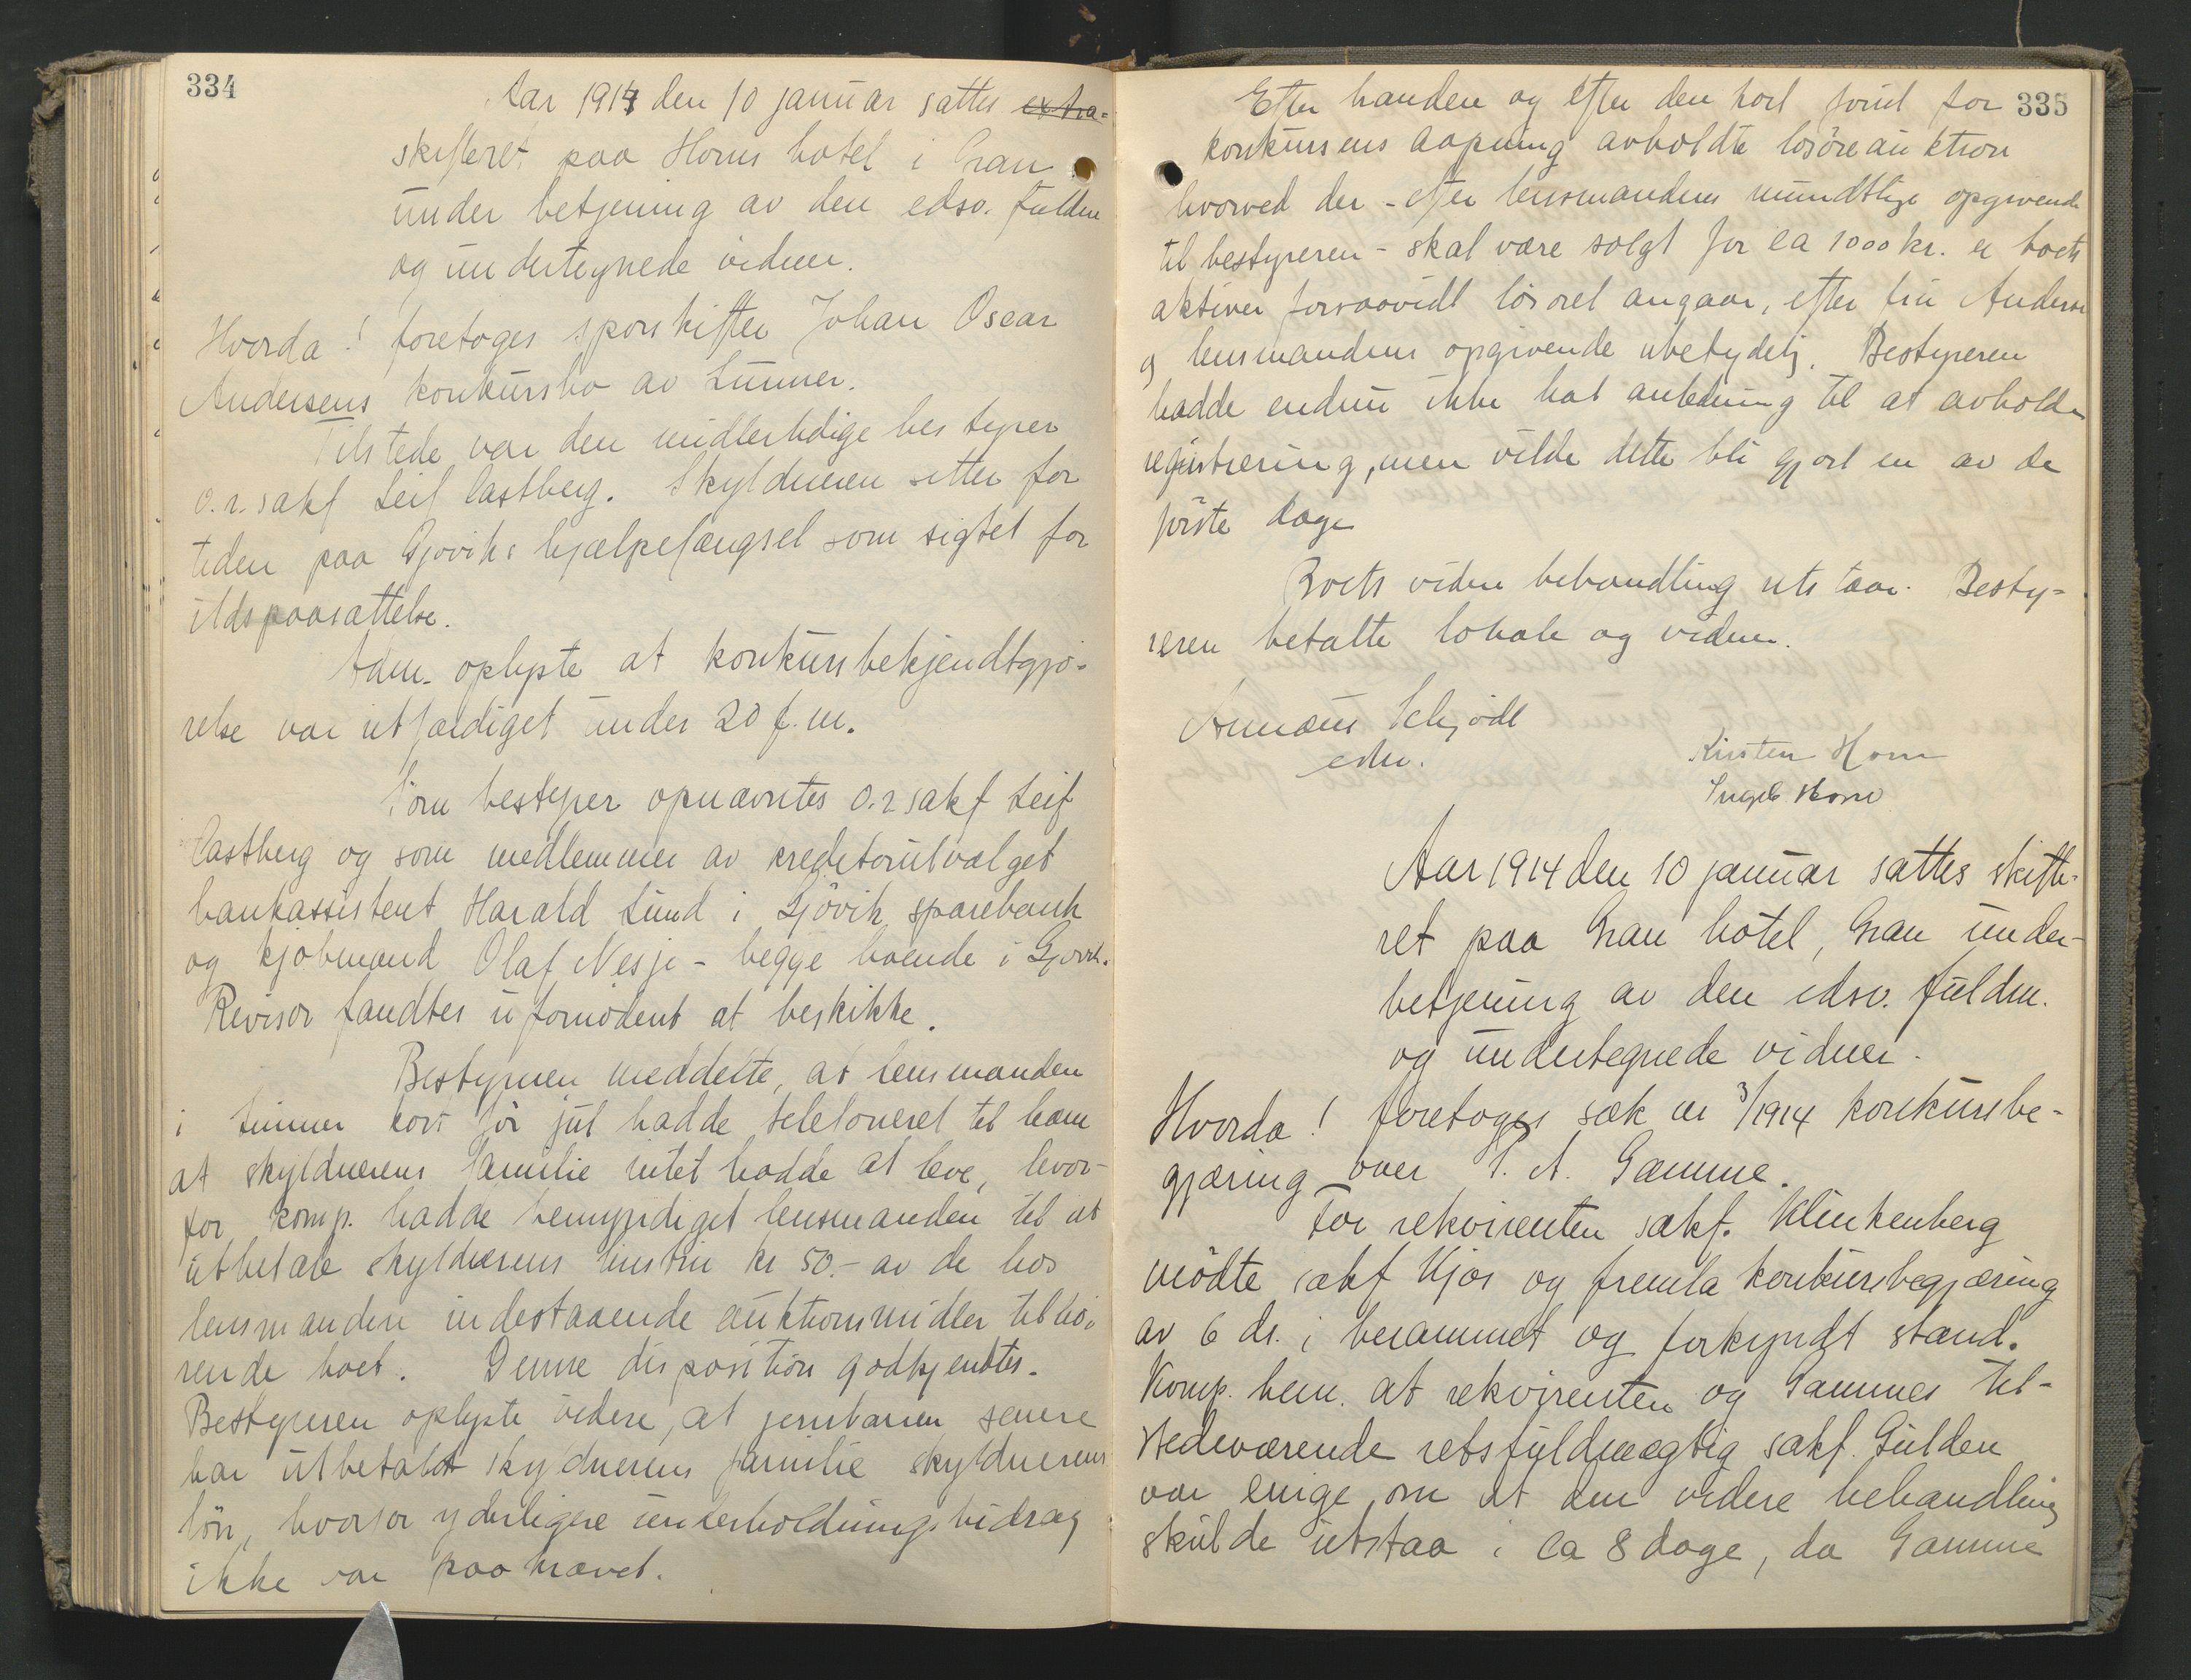 334
Aar 1914 den 10 januar sattes extra-
skifteret paa Horns hotel i Gran
under betjening av den edsv. fuldm
og undertegnede vidner.
Hvorda! foretoges sporskifter Johan Oscar
Andersens konkursbo av Lunner.
Tilstede var den midlertidige bestyrer
o.r.sakf Leif Castberg. Skyldneren sitter for
tiden paa Gjøviks hjælpefængsel som sigtet for
ildspaasættelse.
Adm. oplyste at konkursbekjendtgjø-
relse var utfærdiget under 20 f.m.
Som bestyrer opnævntes o.r.sakf Leif
Castberg og som medlemmer av kreditorutvalget
bankassistent Harald Lund i Gjøvik sparebank
og kjøbmand Olaf Nesje - begge boende i Gjøvik.
Revisor fandtes ufornødent at beskikke.
Bestyreren meddelte, at lensmanden
i Lunner kort før jul hadde telefoneret til ham
at skyldnerens familie intet hadde at leve, hvor-
for komp. hadde bemyndiget lensmanden til at
utbetale skyldnerens hustru kr 50.- av de hos
lensmanden indestaaende auktionsmidler tilhø-
rende boet. Denne disposition godkjendtes.
Bestyreren oplyste videre, at jernbanen senere
har utbetalt skyldnerens familie skyldnerens
løn, hvorfor yderligere underholdningsbidrag
ikke var paakrævet.
335
Efter branden og efter den kort forut for
konkursens aapning avholdte løsøreauktion
hvorved der - efter lensmandens mundtlige opgivende
til bestyreren - skal være solgt for ca 1000 kr. er boets
aktiver forsaavidt løsøret angaar, efter fru Andersen
og lensmandens opgivende ubetydelig. Bestyreren
hadde endnu ikke hat anledning til at avholde
registrering, men vilde dette bli gjort en av de
første dage
Boets videre behandling utstaar. Besty-
reren betalte lokale og vidner.
Annæus Schjødt
edsv.
Kirsten Horn
Ingeb Horn
Aar 1914 den 10 januar sattes skifte-
ret paa Gran hotel, Gran under
betjening av den edsv. fuldm.
og undertegnede vidner.
Hvorda! foretoges sak nr 3/1914 konkursbe-
gjæring over T. A. Gamme.
For rekvirenten sakf. Klinkenberg
mødte sakf Kjos og fremla konkursbegjæring
av 6 ds. i berammet og forkyndt stand.
Komp. bem. at rekvirenten og Gammes til-
stedeværende retsfuldmægtig sakf. Gulden
var enige om at den videre behandling
skulde utstaa i ca 8 dage, da Gamme